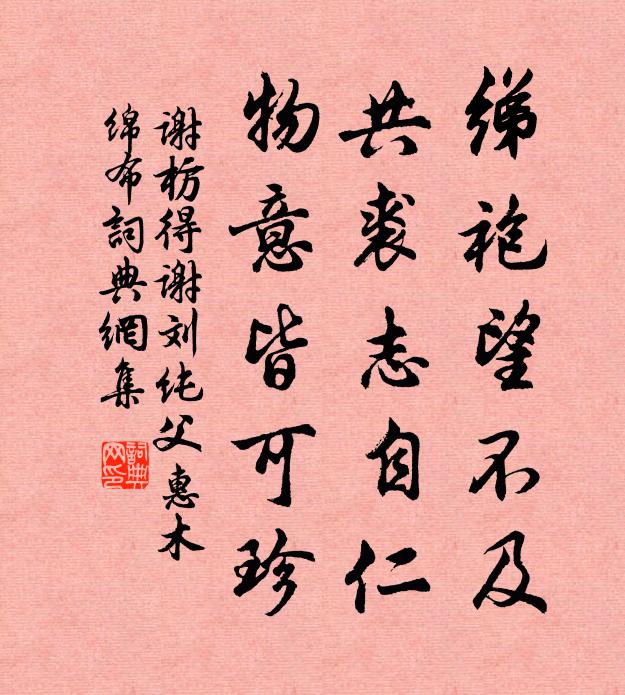 绨袍望不及
共裘志自仁
物意皆可珍
谢枋得谢刘纯父惠木
绵布詞典網集
詞典網印